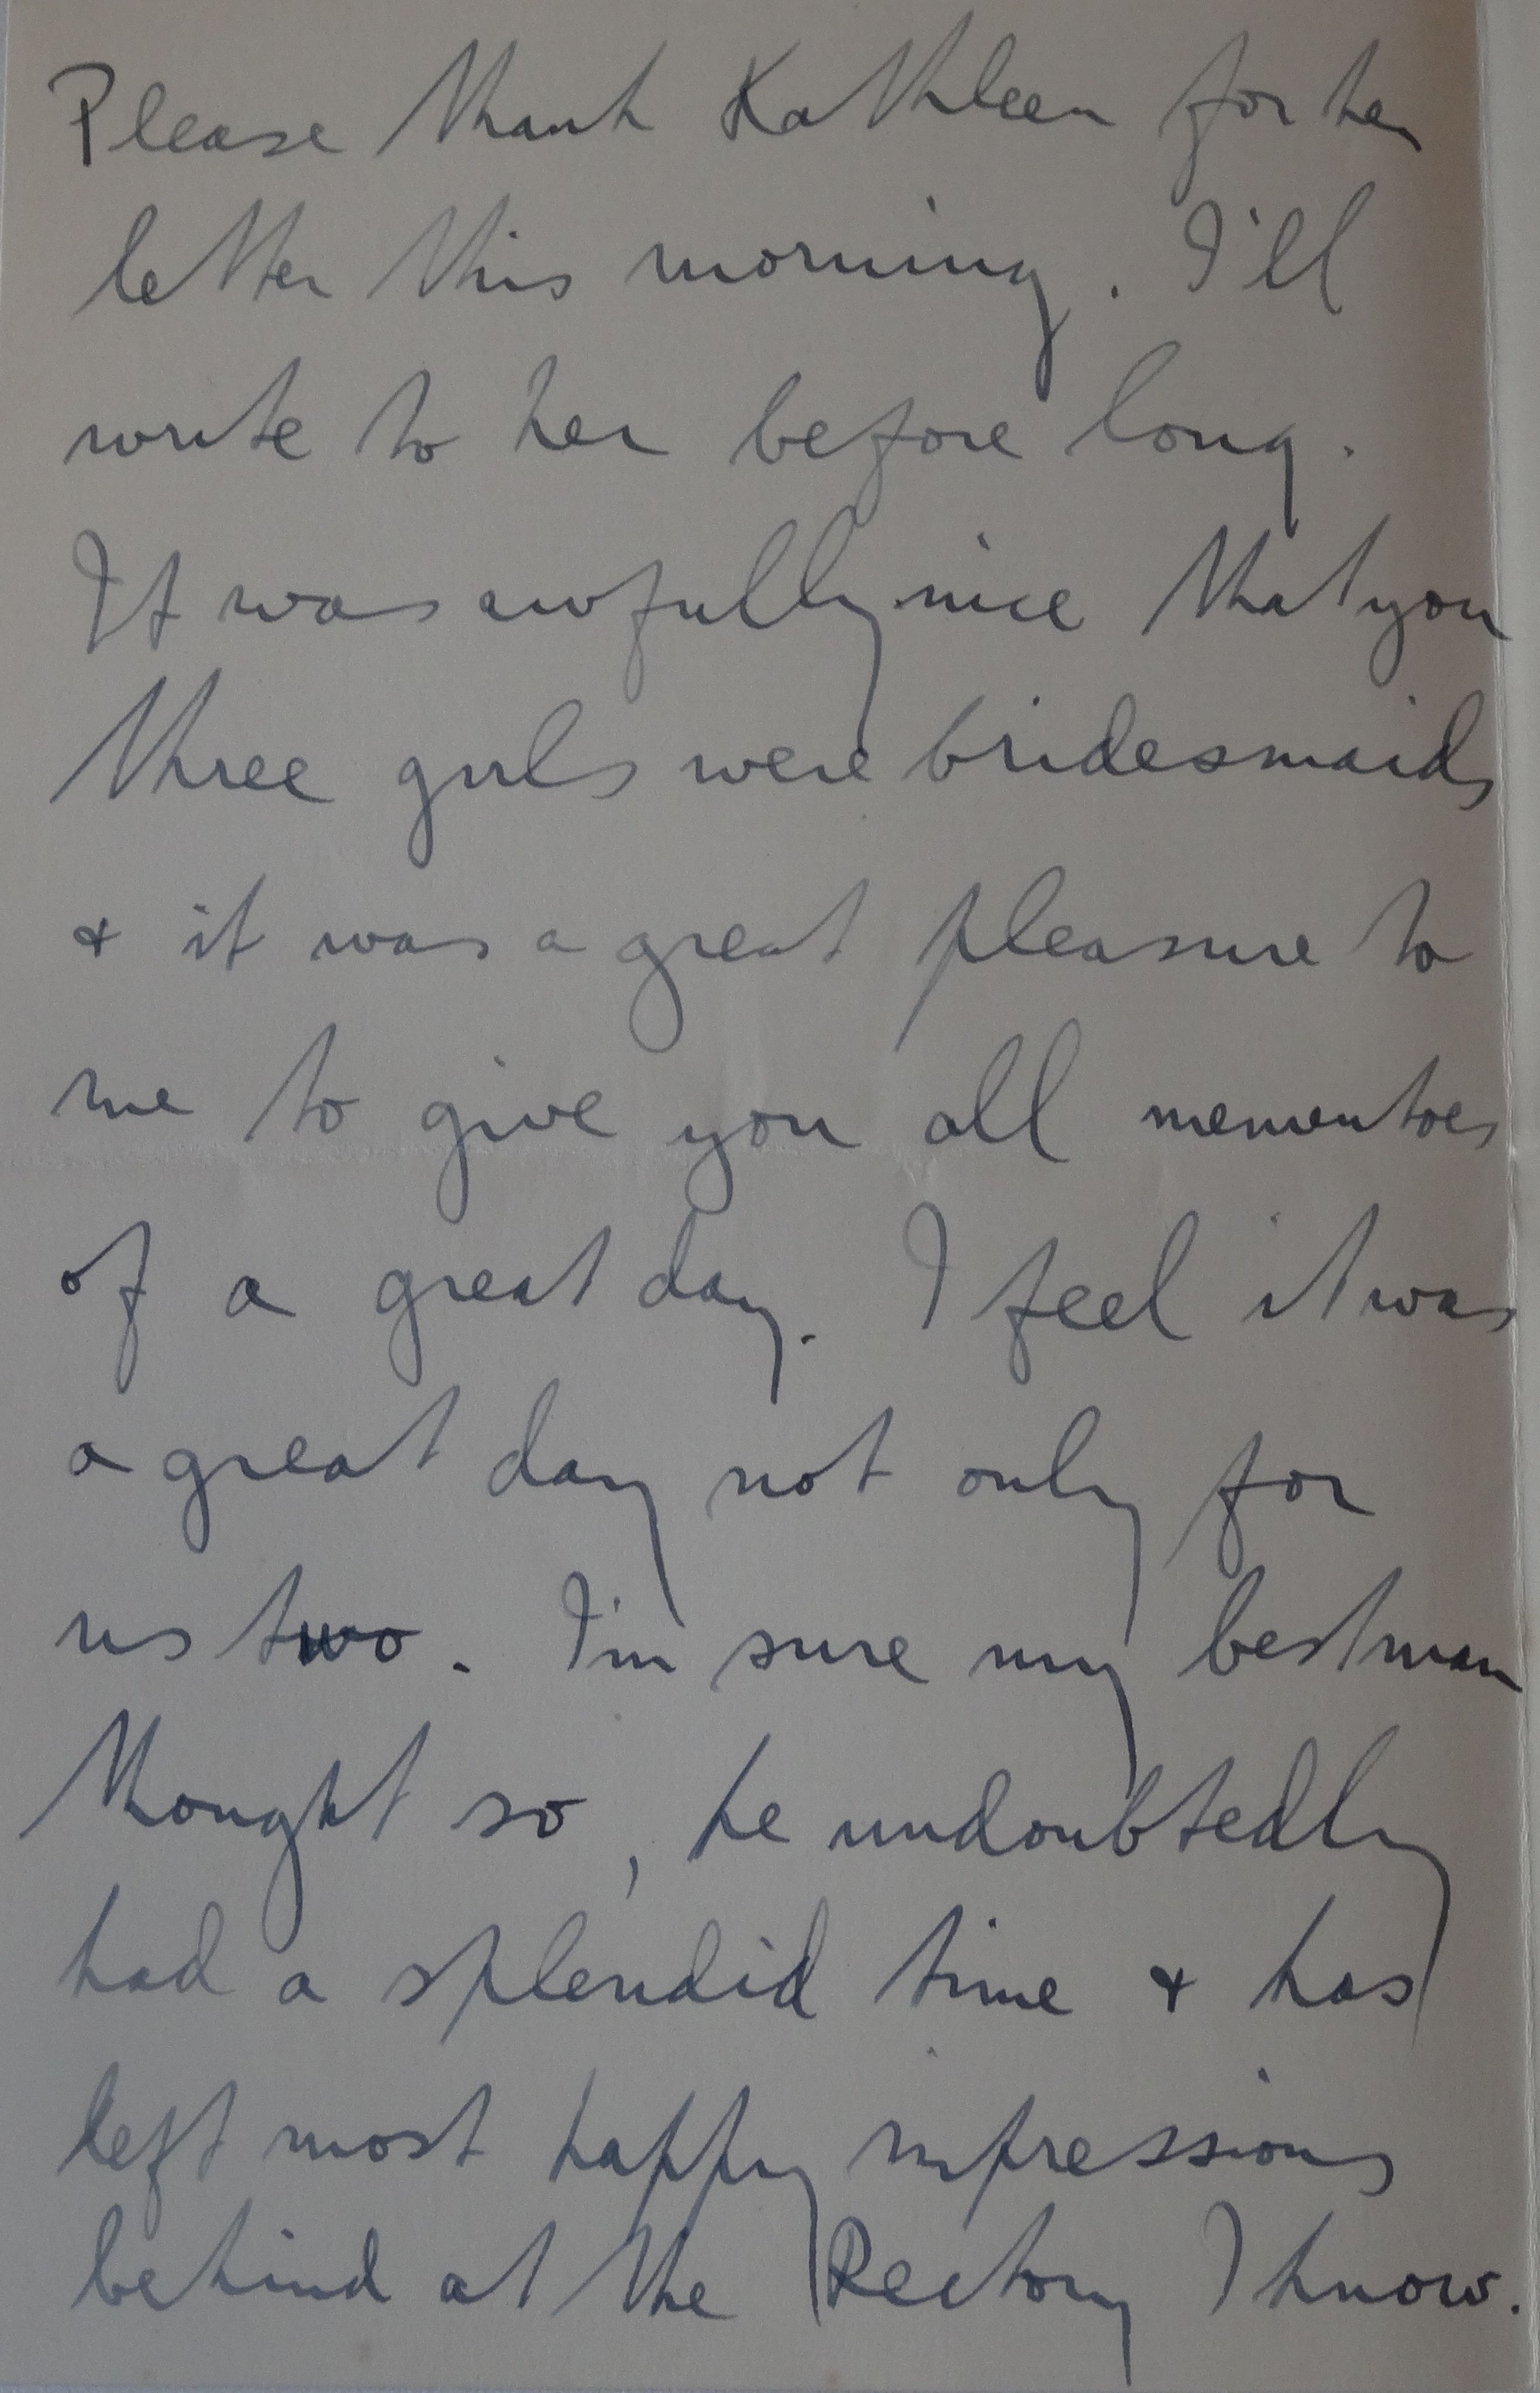 Please thank Kathleen for her
letter this morning. I'll
write to her before long.
It was awfully nice that you
three girls were bridesmaids
& it was a great pleasure to
me to give you all mementoes
of a great day. I feel it was
a great day not only for
us two. I'm sure my bestman
thought so, he undoubtedly
had a splendid time & has
left most happy impressions
behind at the Rectory I know.